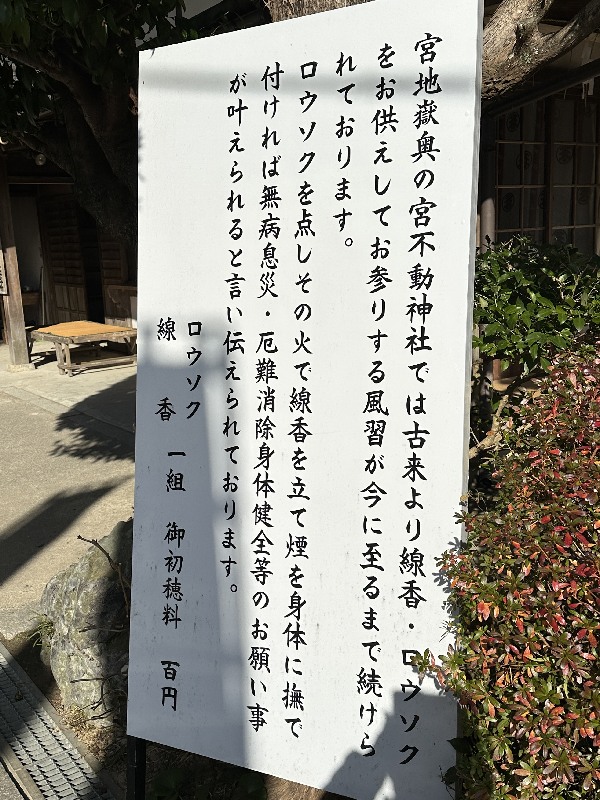 宮地嶽奥の宮不動神社では古来より線香・ロウソク
をお供えしてお参りする風習が今に至るまで続けら
れております。
ロウソクを点しその火で線香を立て煙を身体に撫で
付ければ無病息災・厄難消除身体健全等のお願い事
が叶えられると言い伝えられております。
ロウソク
線香 一組 御初穂料 百円